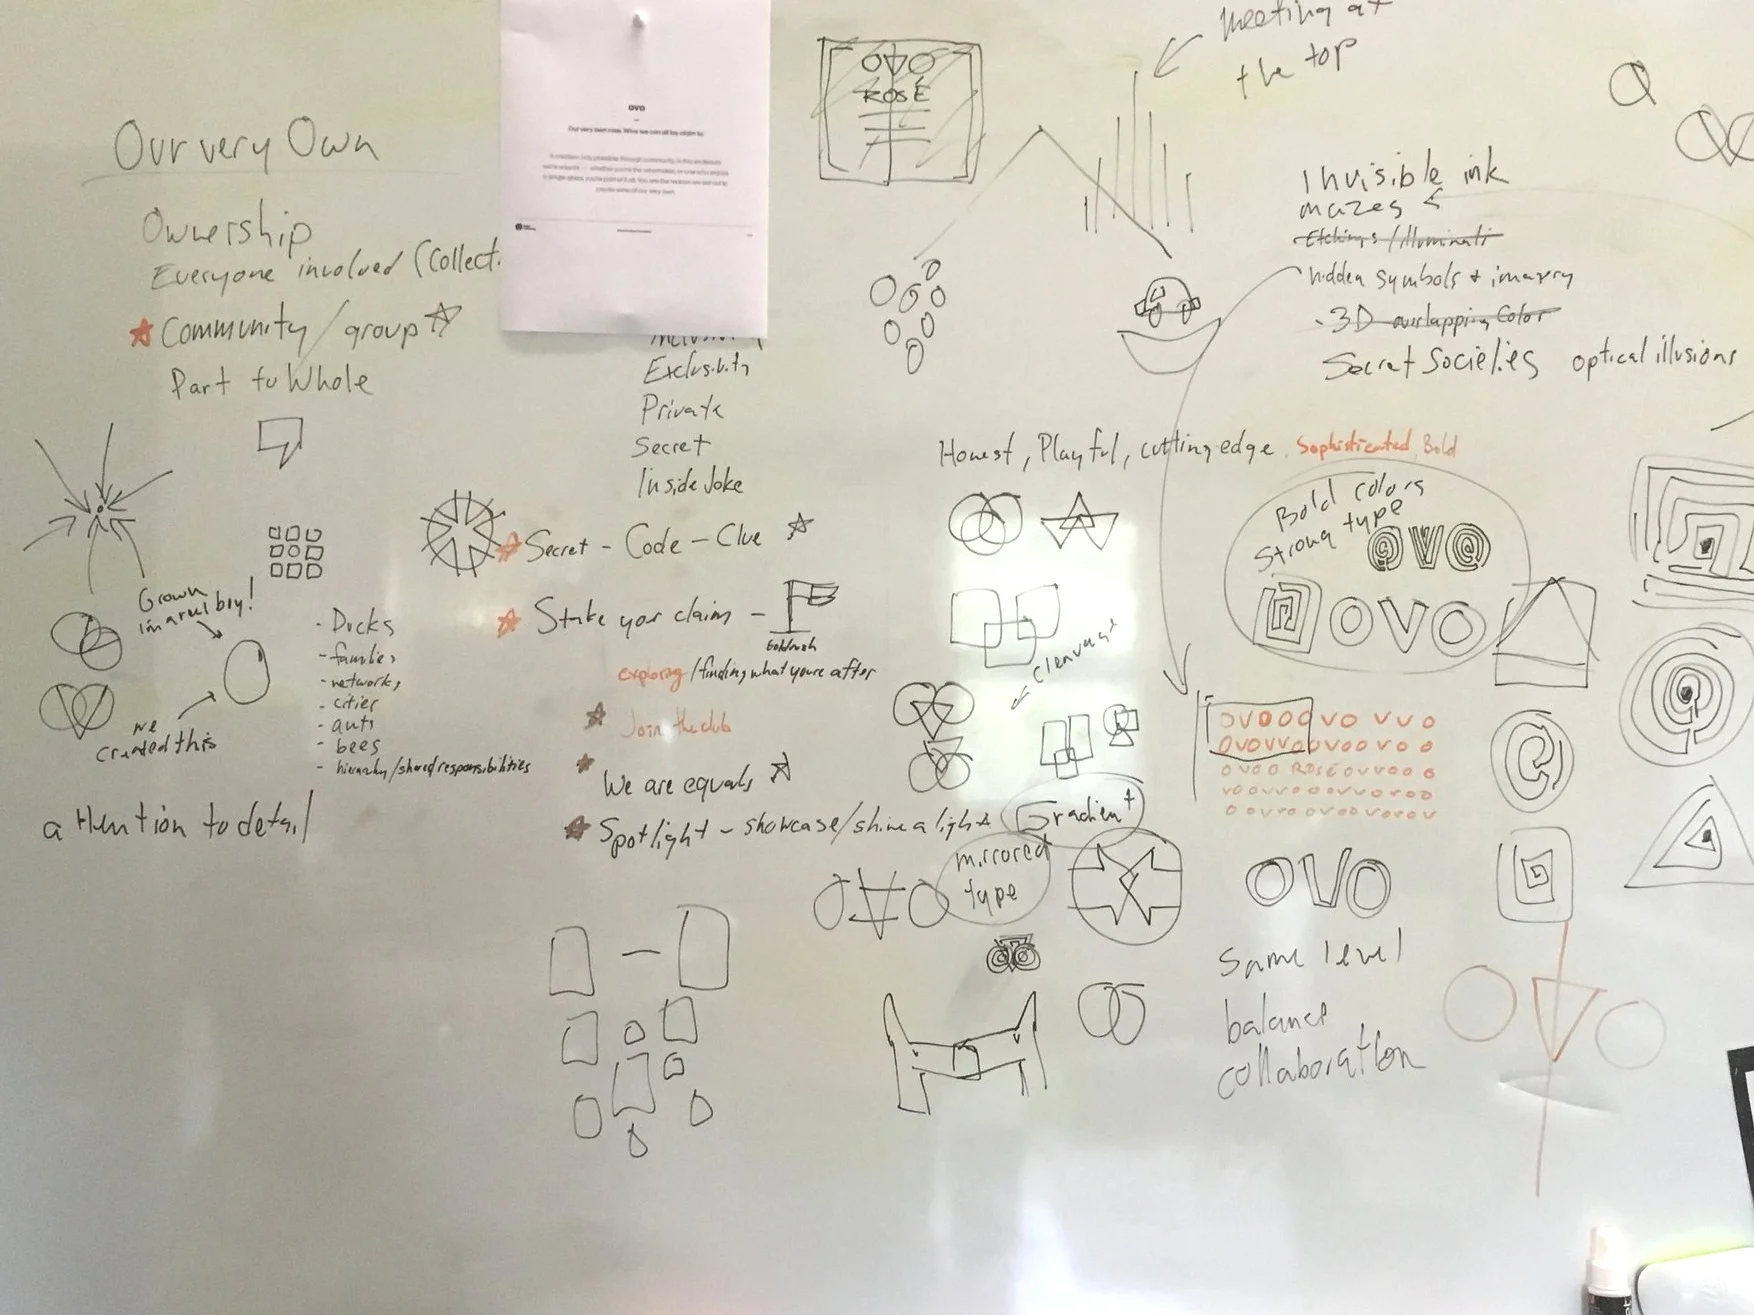 Our very Own
Ownership
Everyone involved (Collect.
Community/group
Part to Whole
ovo
Our very own rosé. Wine we can all lay claim to.
OVO
ROSÉ
meeting at
the top
Invisible ink
mazes
Etchings/illuminati
hidden symbols + imagery
- 3D overlapping Color
Secret Societies optical illusions
Exclusivity
Private
Secret
Inside Joke
Honest, Playful, cutting edge, Sophisticated, Bold
Bold colors
Strong type
OVO
OVO
Secret - Code - Clue
Stake your claim -
Goldrush
exploring/finding what youre after
Join the club
We are equals
Spotlight - showcase/shine a light
Grown
in a rul boy!
we
created this
- Ducks
- families
- networks
- cities
- ants
- bees
- hierarchy/shared responsibilities
attention to detail
cleavage
Gradient
mirrored
type
OVO
ROSÉ
OVO
OVO
Same level
balance
collaboration